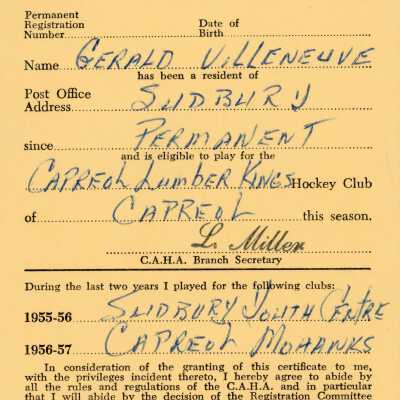 Permanent
Registration Date of
Number Birth
Name GERALD VILLENEUVE
has been a resident of
Post Office
Address SUDBURY
since PERMANENT
and is eligible to play for the
CAPREOL LUMBER KINGS Hockey Club
of CAPREOL this season.
L. Miller
C.A.H.A. Branch Secretary
During the last two years I played for the following clubs:
1955-56 SUDBURY YOUTH CENTRE
1956-57 CAPREOL MOHANKS
In consideration of the granting of this certificate to me,
with the privileges incident thereto, I hereby agree to abide by
all the rules and regulations of the C.A.H.A. and in particular
that I will abide by the decision of the Registration Committee